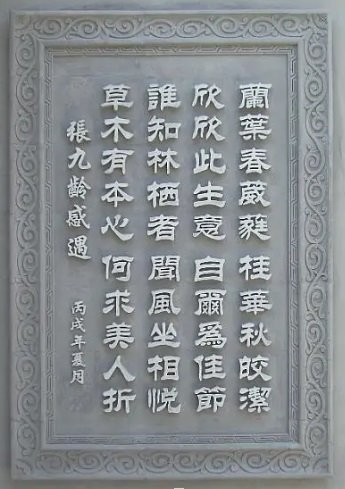 蘭葉春葳蕤桂華秋皎潔
欣欣此生意自爾為佳節
誰知林栖者聞風坐相悅
草木有本心何求美人折
張九齡感遇
丙戌年夏月